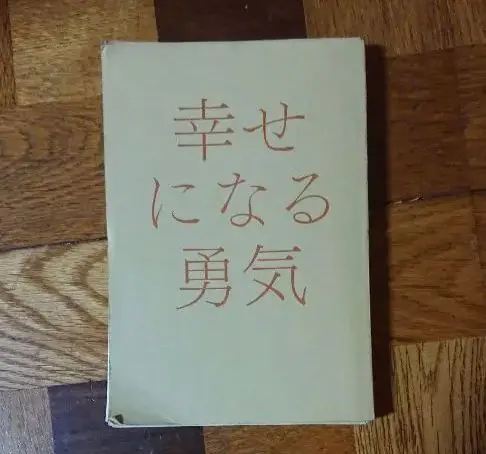 幸せ
になる
勇気